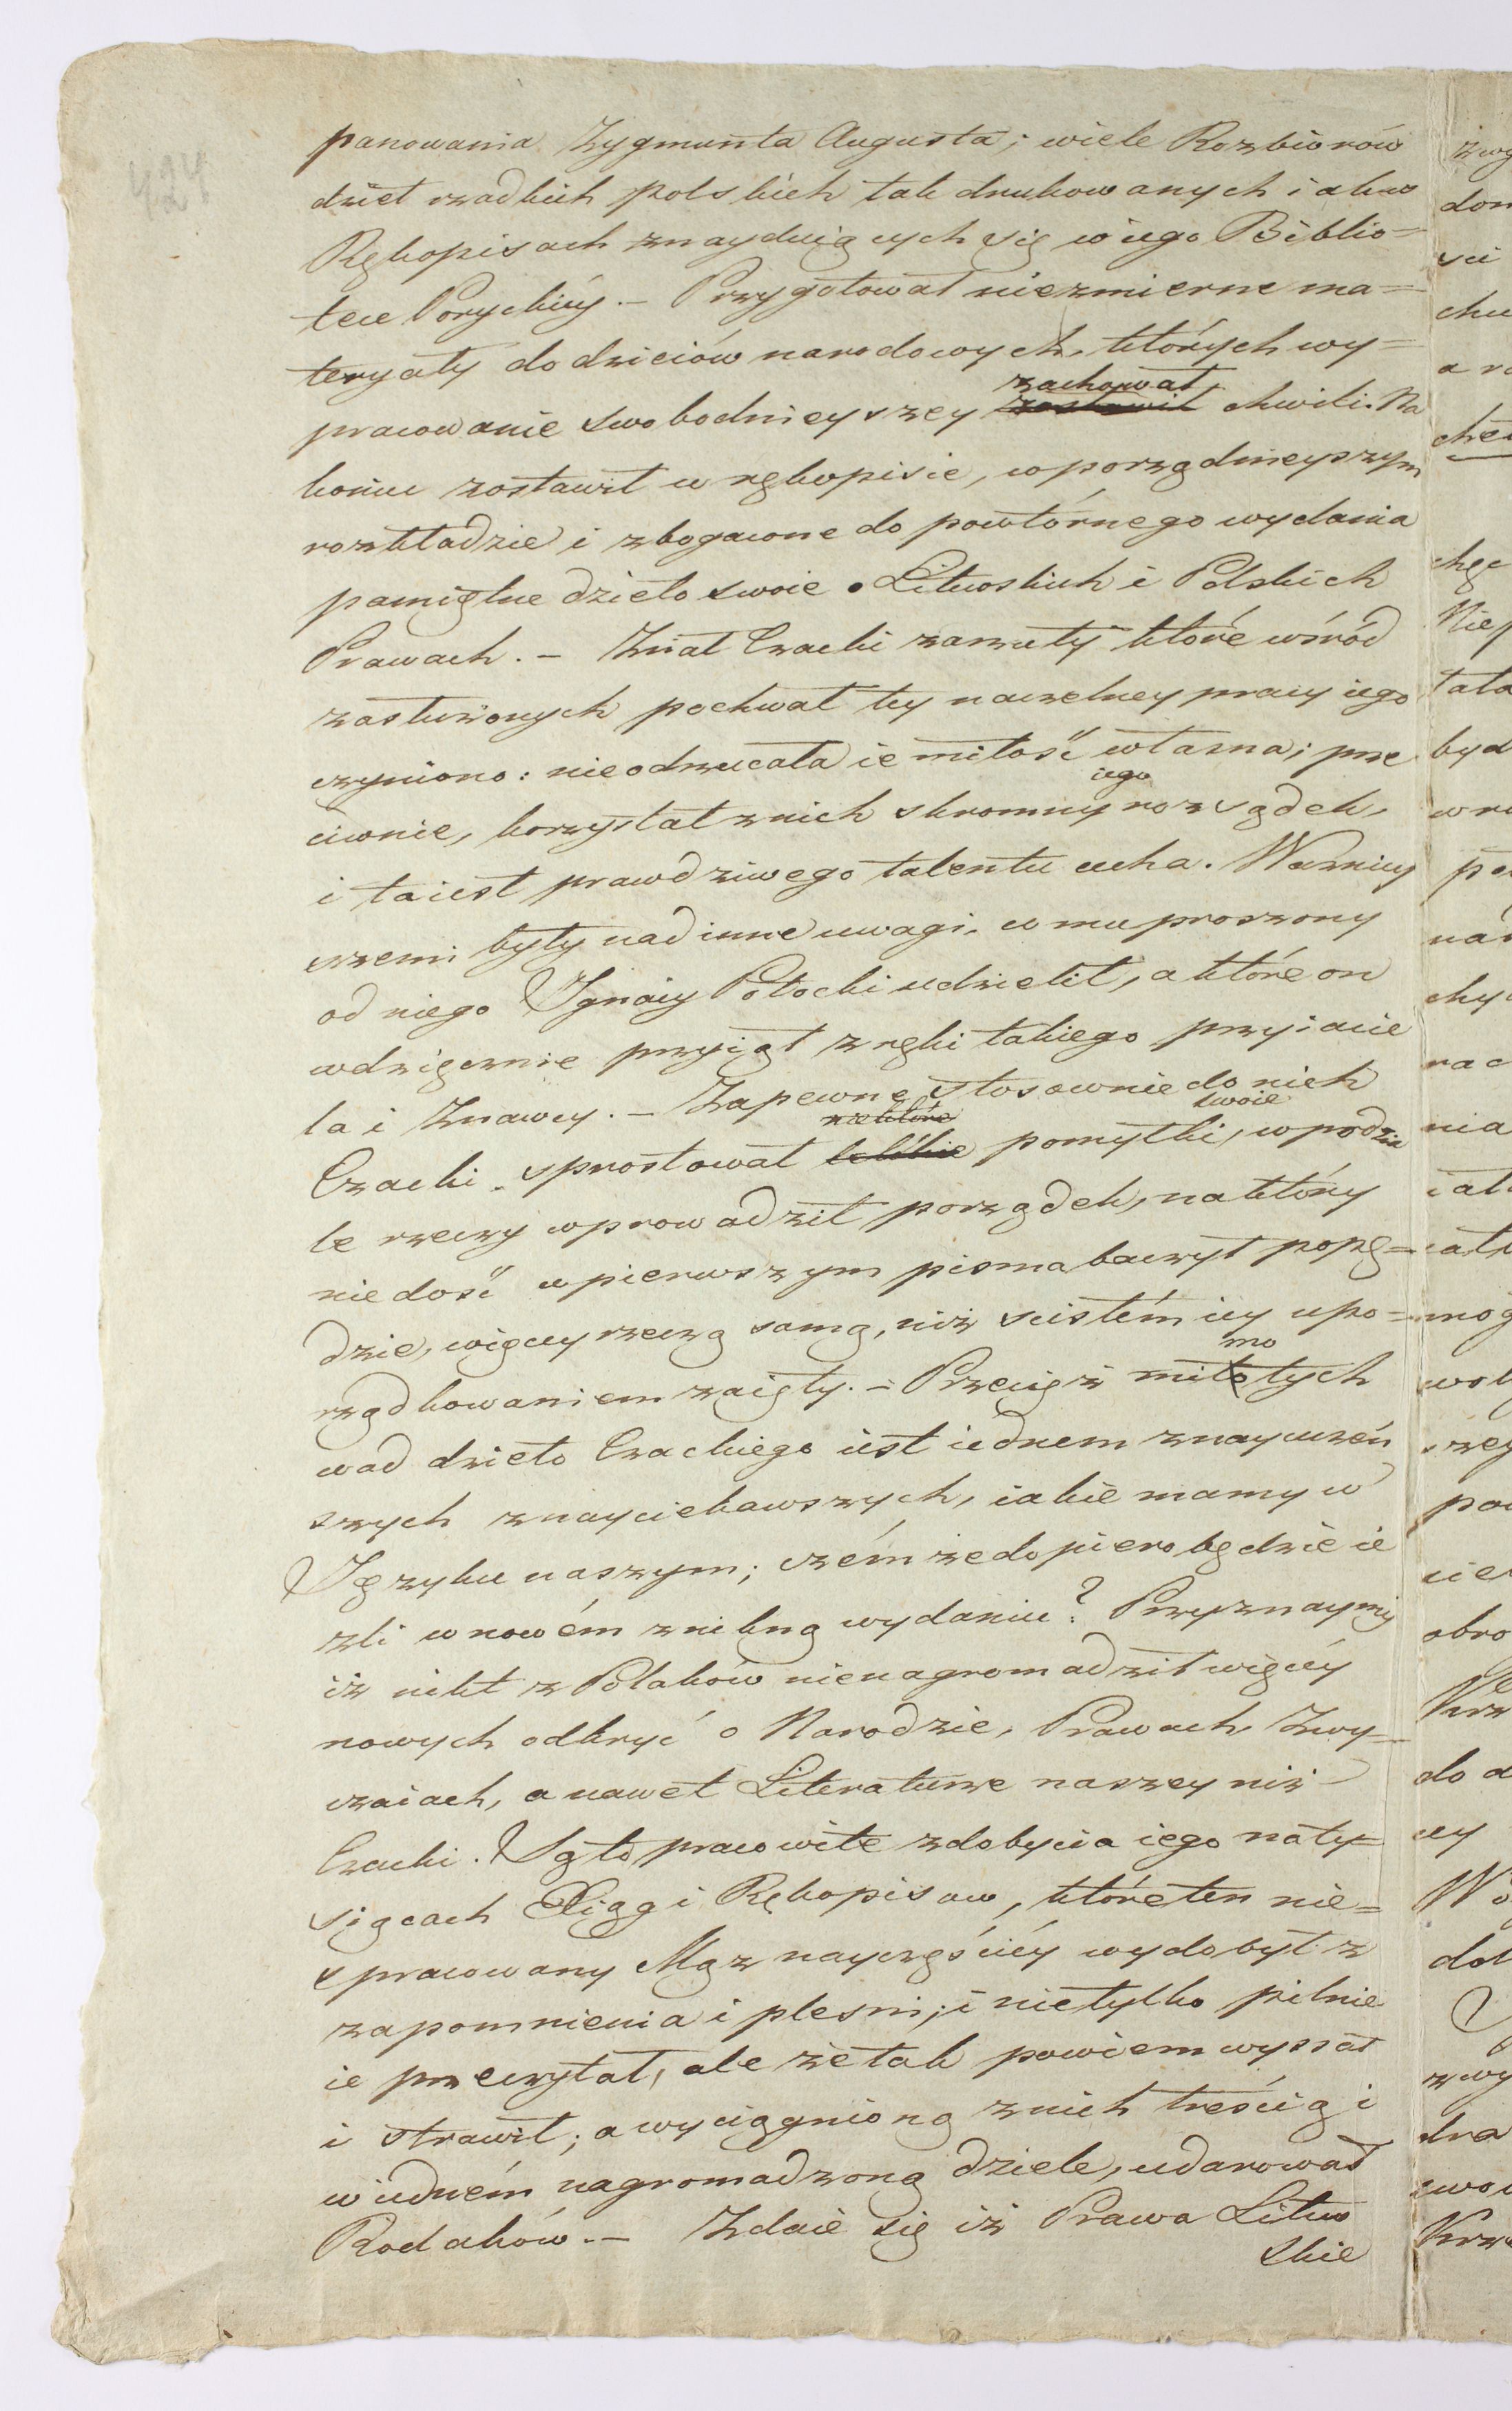 424
panowania Zygmunta Augusta; wiele Rozbiorów
dzieł rzadkich polskich tak drukowanych iak w
Rękopisach znayduiących się w iego Biblio=
tece Poryckiéy. – Przygotował niezmierne ma=
teryały do dzieiów narodowych, których wy=
zachował
pracowanie swobodnieyszey zostawił chwili. Na
końcu zostawił w rękopisie, w porządnieyszym
rozkładzie i zbogacone do powtórnego wydania
pamiętne dzieło swoie o Litwoskich i Polskich
Prawach. – Znał Czacki zarzuty które wśród
zasłużonych pochwał tey naczelney pracy iego
czyniono: nieodrzucała ie miłość własna; prze
iego
ciwnie, korzystał znich skromny rozsądek,
i ta iest prawdziwego talentu cecha. Ważniey
szemi były nad inne uwagi, co mu proszony
od niego Ignacy Potocki udzielił, a które on
wdzięcznie przyiął z ręki takiego przyiacie
la i Znawcy. – Zapewne stosownie do nich
niektóre swoie
Czacki sprostował lekkie pomyłki, wpodzia
le rzeczy wprowadził porządek, na który
niedość w pierwszym pisma baczył popę=
dzie, więcey rzeczą samą, niż scisłém iey upo=
mo
rządkowaniem zaięty. – Przecięż mito tych
wad dzieło Czackiego iest iednem znayuczeń
szych znayciekawszych, iakie mamy w
Ięzyku naszym; czém że dopiero będzie ie
zli wnowém znikną wydaniu? Przyznaymy
iż nikt z Polaków nienagromadził więcéy
nowych odkryć o Narodzie, Prawach, Zwy=
czaiach, a nawet Literaturze naszey niż
Czacki. Są to pracowite zdobycia iego na ty=
siącach Xiąg i Rękopisow, które ten nie=
spracowany Mąz nayczęściéy wydobył z
zapomnienia i plesni; i nietylko pilnie
ie przeczytał, ale że tak powiem wyssał
i strawił; a wyciągnioną znich treścią i
w iedném nagromadzoną dziele, udarował
Rodaków. – Zdaie się iż Prawa Litew
skie